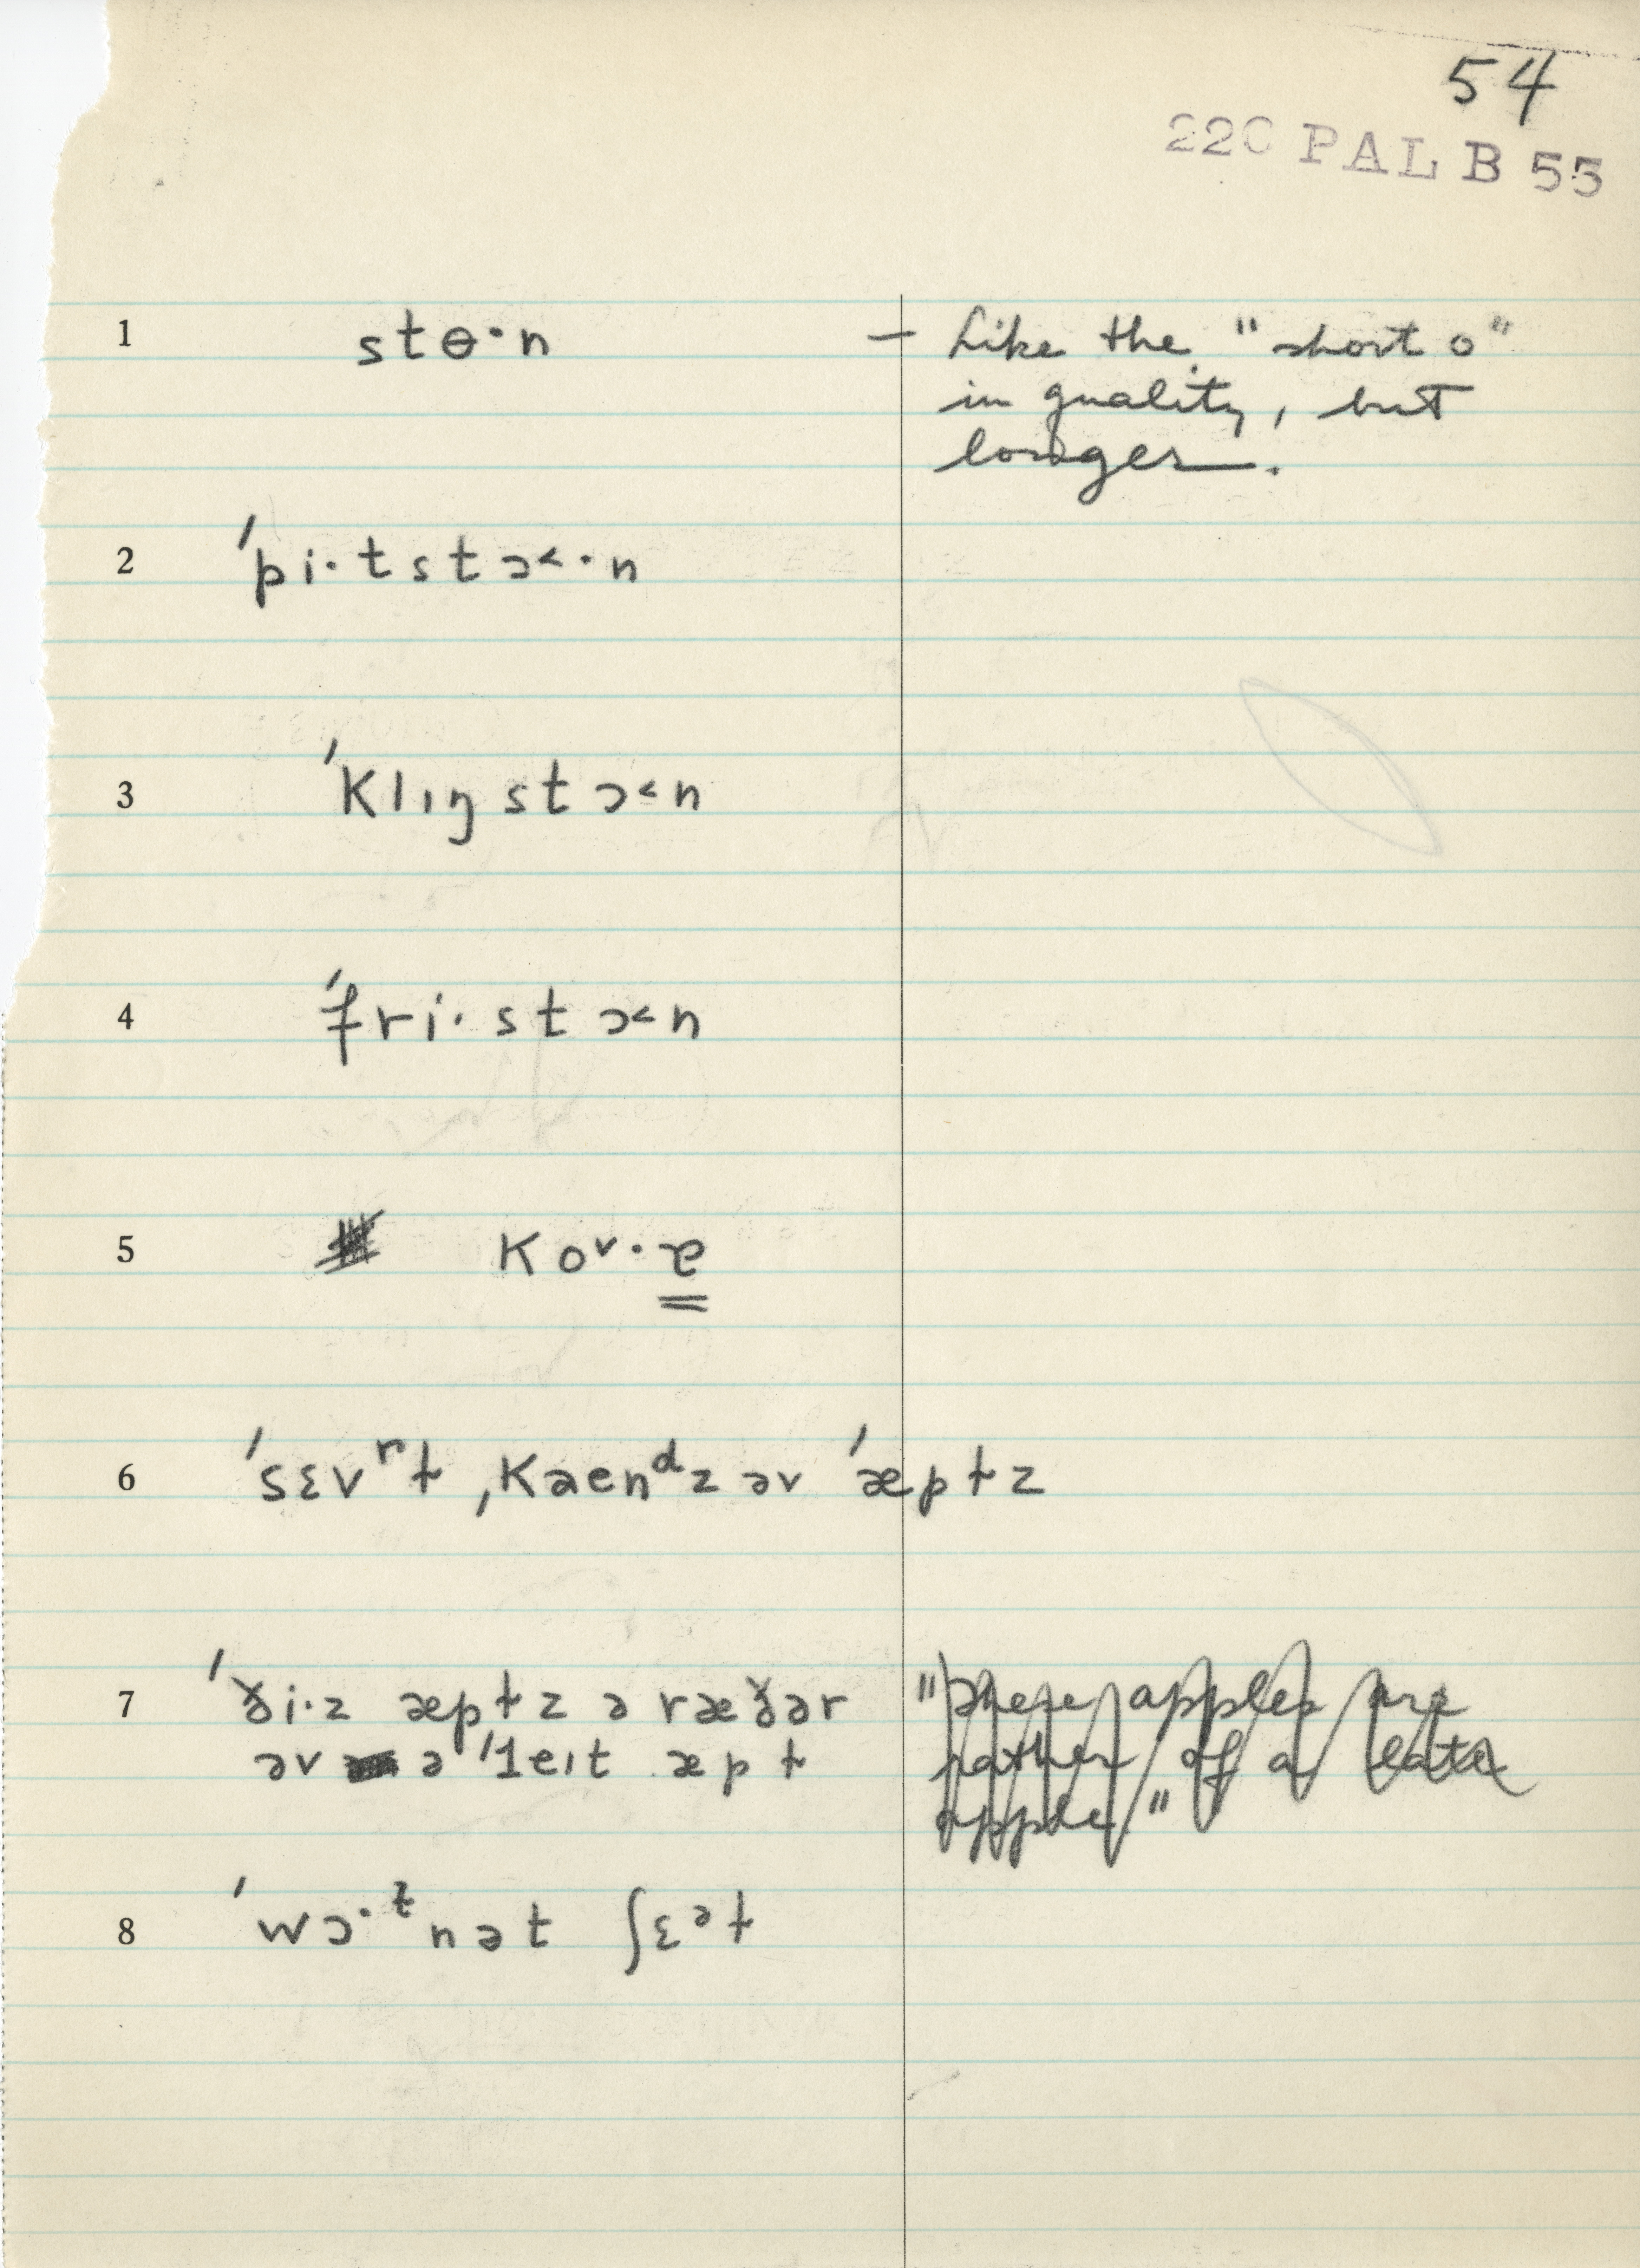 54
220 PAL B 55
1 stɵ·n — Like the "short o"
in quality, but
longer.
2 ˈpi·tstɔ˂·n
3 ˈklɪŋstɔ˂n
4 ˈfri·stɔ˂n
5 koᵛ·ɐ
6 ˈsɛvʳɫ ˌkaenᵈz əv ˈæpɫz
7 ˈði·z æpɫz ə ræðər "these apples are
əv ə ˈleɪt æpɫ rather of a late
apple"
8 ˈwɔ·ᵗnət ʃɛᵊɫ